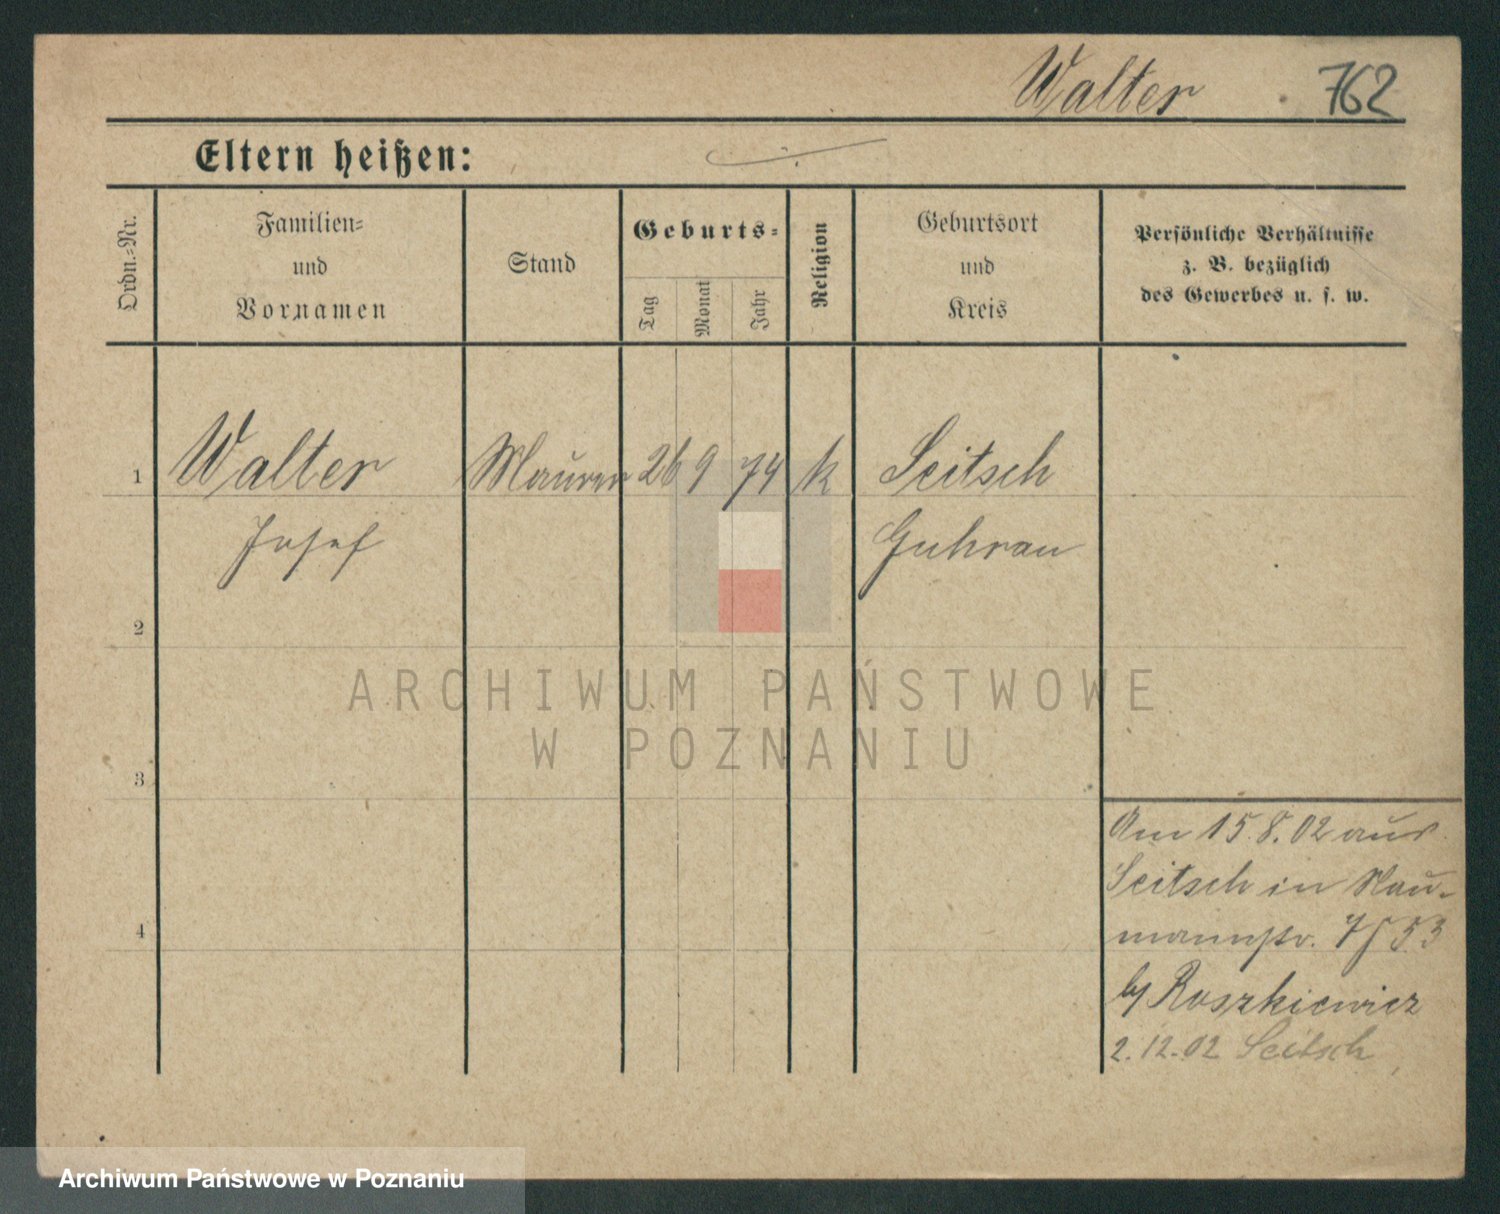 Walter 762
Eltern heißen:
Ordn.-Nr.
Familien-
und
Vornamen
Stand
Geburts-
Tag
Monat
Jahr
Religion
Geburtsort
und
Kreis
Persönliche Verhältnisse
z. B. bezüglich
des Gewerbes u. s. w.
1 Walter Maurer 26 9 74 k Seitsch
Josef Guhrau
2
3
4
Am 15.8.02 aus
Seitsch in Nau-
mannstr. 53
by Roszkiewicz
2.12.02 Seitsch
ARCHIWUM PAŃSTWOWE
W POZNANIU
Archiwum Państwowe w Poznaniu